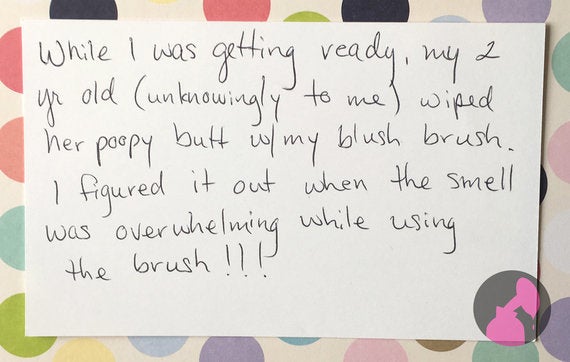 While I was getting ready, my 2
yr old (unknowingly to me) wiped
her poopy butt w/my blush brush.
I figured it out when the smell
was overwhelming while using
the brush!!!